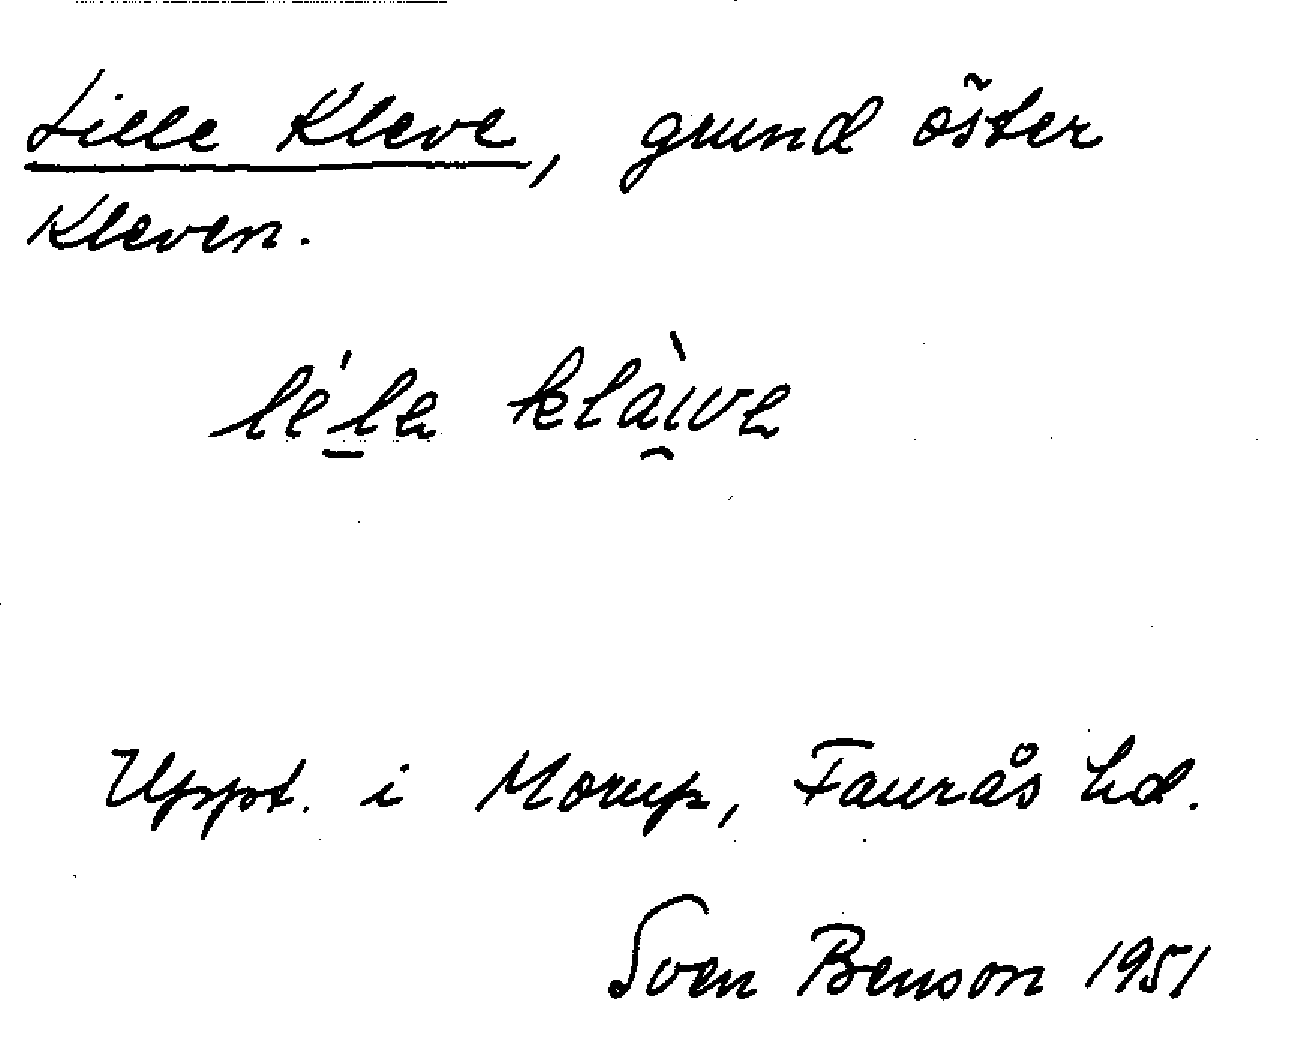 Lille Kleve, grund öster
Kleven.
lé̱la kla̯ìvə
Uppt. i Morup, Faurås hd.
Sven Benson 1951